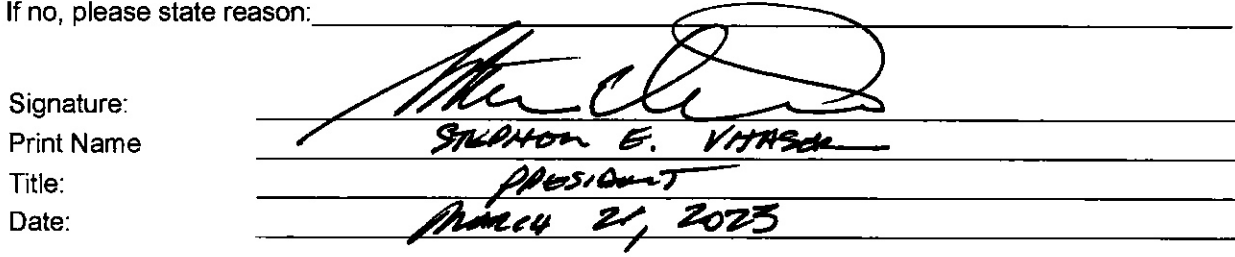 If no, please state reason:
Signature:
Print Name STEPHEN E. VITASEK
Title: PRESIDENT
Date: MARCH 21, 2023